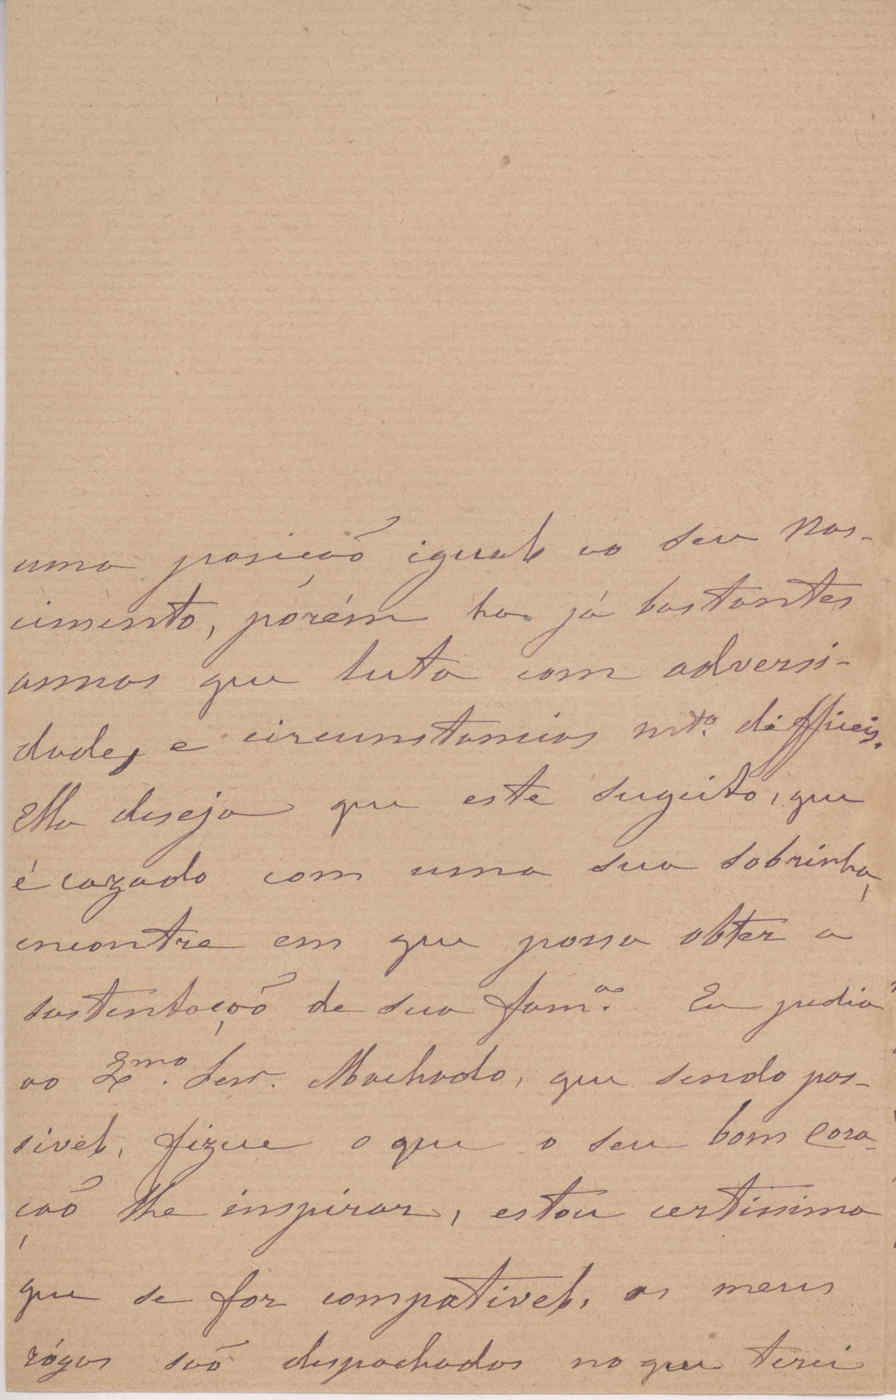 uma posicaõ igual ao seu nas-
cimento, pórém ha já bastantes
annos que luta com adversi-
dades, e circunstancias mtº. difficeis.
Ella deseja que este sugeito, que
é cazado com uma sua sobrinha,
encontre em que possa obter a
sustentaçaõ de sua famª. Eu pedia
ao Exmo. Senr. Machado, que sendo pos-
sivel, fizece o que o seu bom Cora-
çaõ lhe inspirar, estou certissima
que se for compativel, os meus
rógos saõ despachados no que terei